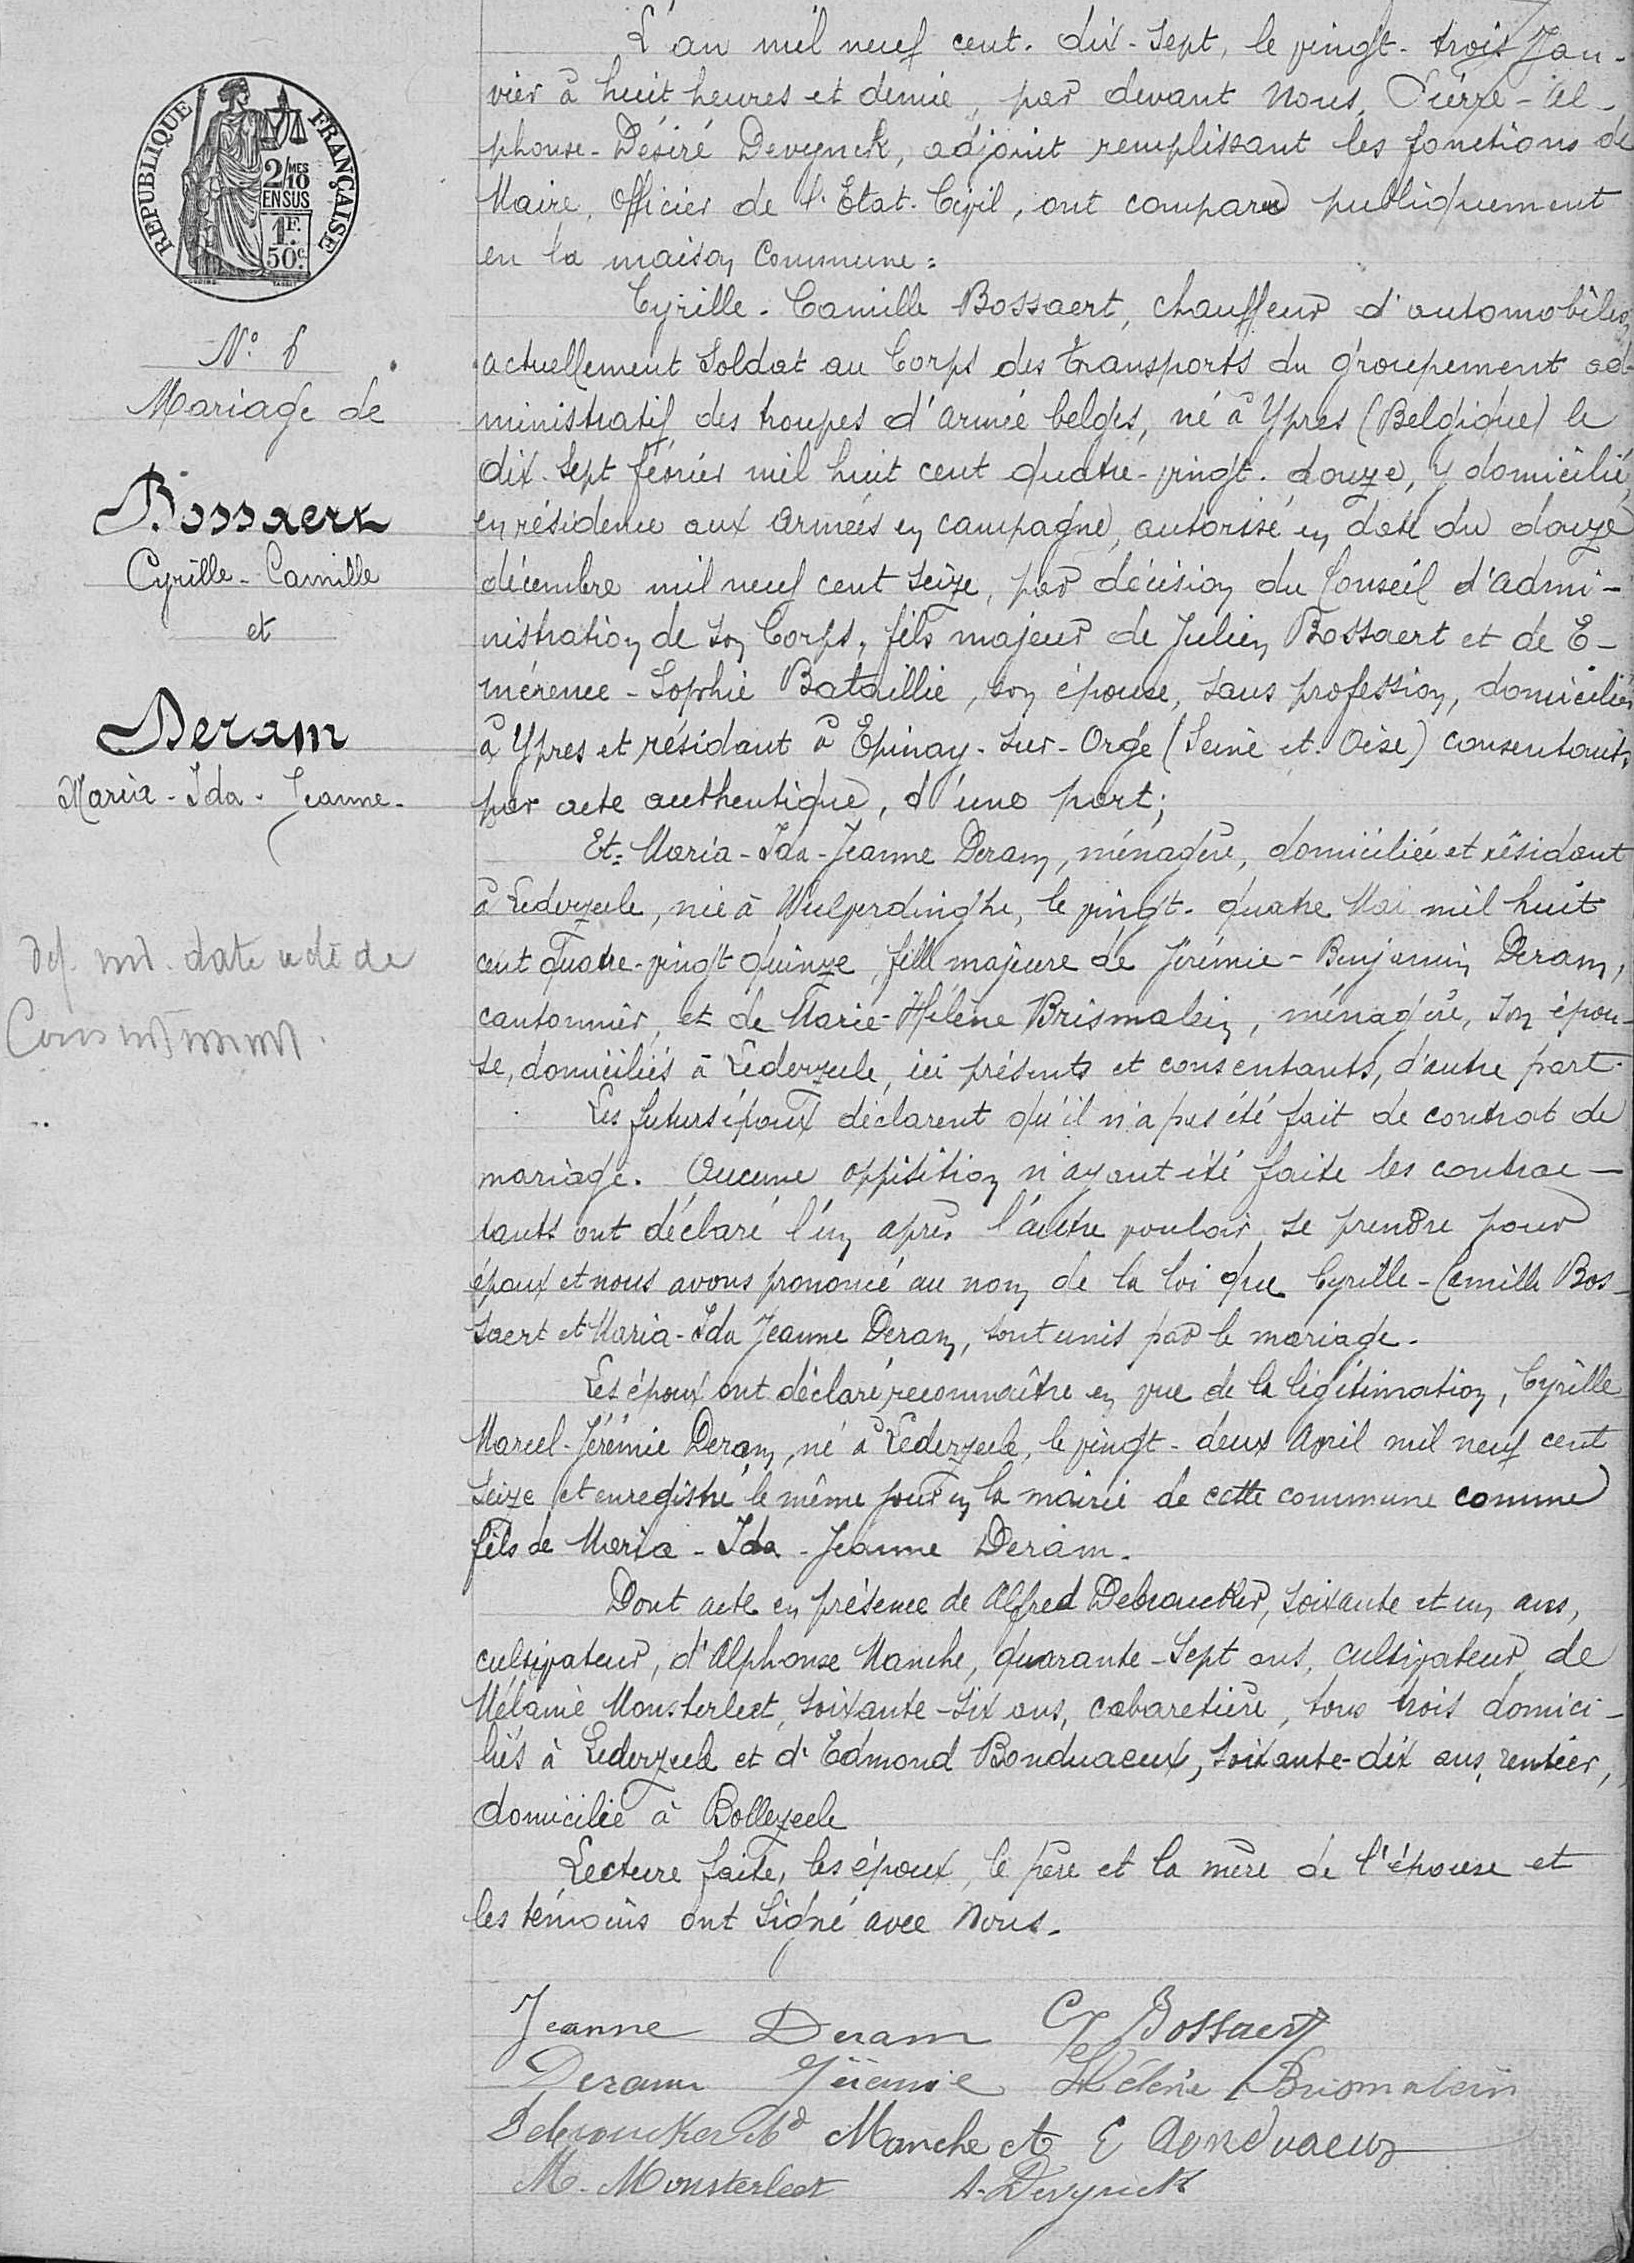 RÉPUBLIQUE FRANÇAISE
2/10 MES
EN SUS
1F.
50c.
N° 6
Mariage de
Bossaert
Cyrille-Camille
et
Deram
Maria-Ida-Jeanne.
date
L'an mil neuf cent. dix-sept, le vingt-trois Jan-
vier à huit heures et demie, par devant Nous, Pierre-Al-
phonse-Désiré Devynck, adjoint remplissant les fonctions de
Maire, Officier de l'Etat-Civil, ont comparu publiquement
en la maison Commune:
Cyrille-Camille Bossaert, chauffeur d'automobiles,
actuellement Soldat au Corps des transports du groupement ad-
ministratif des troupes d'armée belges, né à Ypres (Belgique) le
dix-sept février mil huit cent quatre-vingt-douze, y domicilié,
en résidence aux armées en campagne, autorisé en date du douze
décembre mil neuf cent seize, par décision du Conseil d'admi-
nistration de son Corps, fils majeur de Julien Bossaert et de E-
mérence-Sophie Bataillie, son épouse, sans profession, domiciliés
à Ypres et résidant à Epinay-sur-Orge (Seine et Oise) consentants
par acte authentique, d'une part;
Et: Maria-Ida-Jeanne Deram, ménagère, domiciliée et résidant
à Lederzeele, née à Wulverdinghe, le vingt-quatre Mai mil huit
cent quatre-vingt quinze, fille majeure de Jérémie-Benjamin Deram,
cantonnier, et de Marie-Hélène Brismalein, ménagère, son épou-
se, domiciliés à Lederzeele, ici présents et consentants, d'autre part.
Les futurs époux déclarent qu'il n'a pas été fait de contrat de
mariage. Aucune oppisition n'ayant été faite les contrac-
tants ont déclaré l'un après l'autre vouloir se prendre pour
époux et nous avons prononcé au nom de la loi que Cyrille-Camille Bos-
saert et Maria-Ida Jeanne Deram, sont unis par le mariage.
Les époux ont déclaré reconnaître en vue de la légitimation, Cyrille
Marcel-Jérémie Deram, né à Lederzeele, le vingt-deux Avril mil neuf cent
seize et enregistré le même jour en la mairie de cette commune comme
fils de Maria-Ida-Jeanne Deram.
Dont acte en présence de Alfred Debroucker, soixante et un ans,
cultivateur, d'Alphonse Manche, quarante-sept ans, cultivateur, de
Mélanie Monsterleet, soixante-six ans, cabaretière, tous trois domici-
liés à Lederzeele et d'Edmond Bonduaeux, soixante-dix ans, rentier,
domicilié à Bollezeele
Lecture faite, les époux, le père et la mère de l'épouse et
les témoins ont signé avec Nous.
Jeanne Deram Cy Bossaert
Deram Jérémie Hélène Brismalein
Debroucker Ad Manche A E Bonduaeux
M. Monsterleet A. Devynck